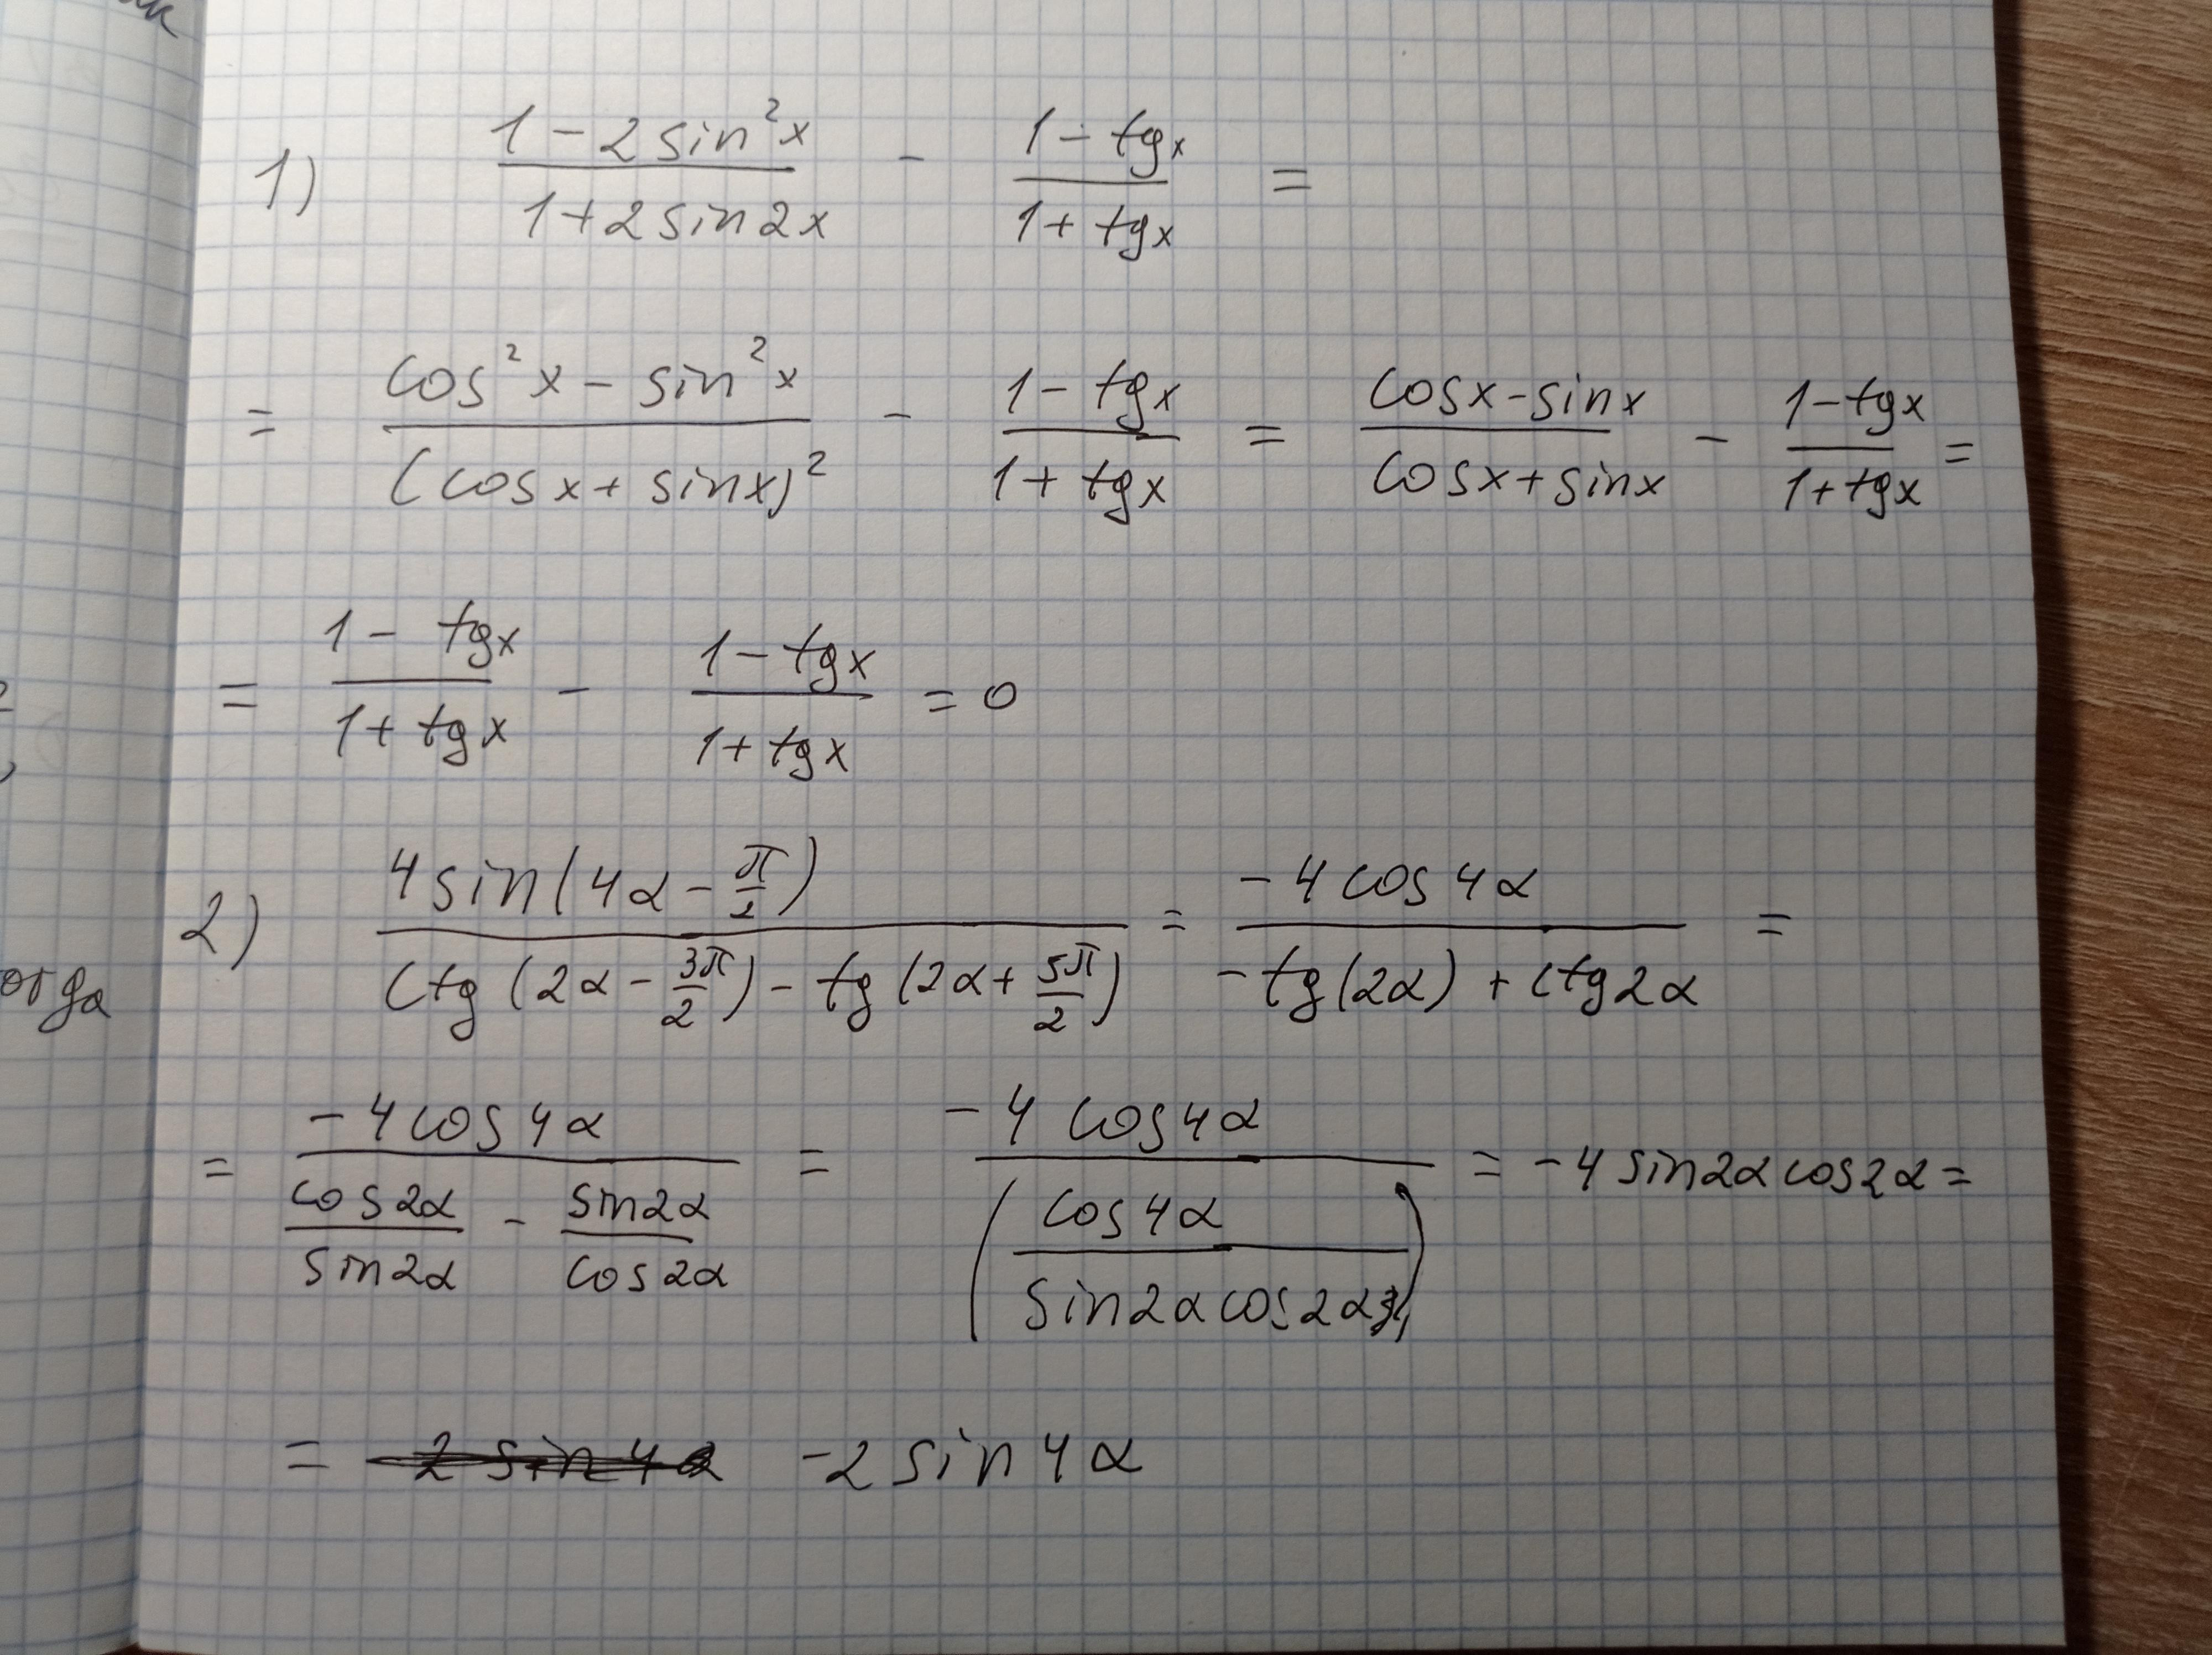 1) (1 - 2 sin²x)/(1 + 2 sin 2x) - (1 - tg x)/(1 + tg x) =
= (cos²x - sin²x)/(cos x + sin x)² - (1 - tg x)/(1 + tg x) = (cos x - sin x)/(cos x + sin x) - (1 - tg x)/(1 + tg x) =
= (1 - tg x)/(1 + tg x) - (1 - tg x)/(1 + tg x) = 0
2) (4 sin(4α - π/2))/(ctg(2α - 3π/2) - tg(2α + 5π/2)) = (-4 cos 4α)/(-tg(2α) + ctg 2α) =
= (-4 cos 4α)/(cos 2α/sin 2α - sin 2α/cos 2α) = (-4 cos 4α)/(cos 4α/(sin 2α cos 2α)) = -4 sin 2α cos 2α =
= -2 sin 4α